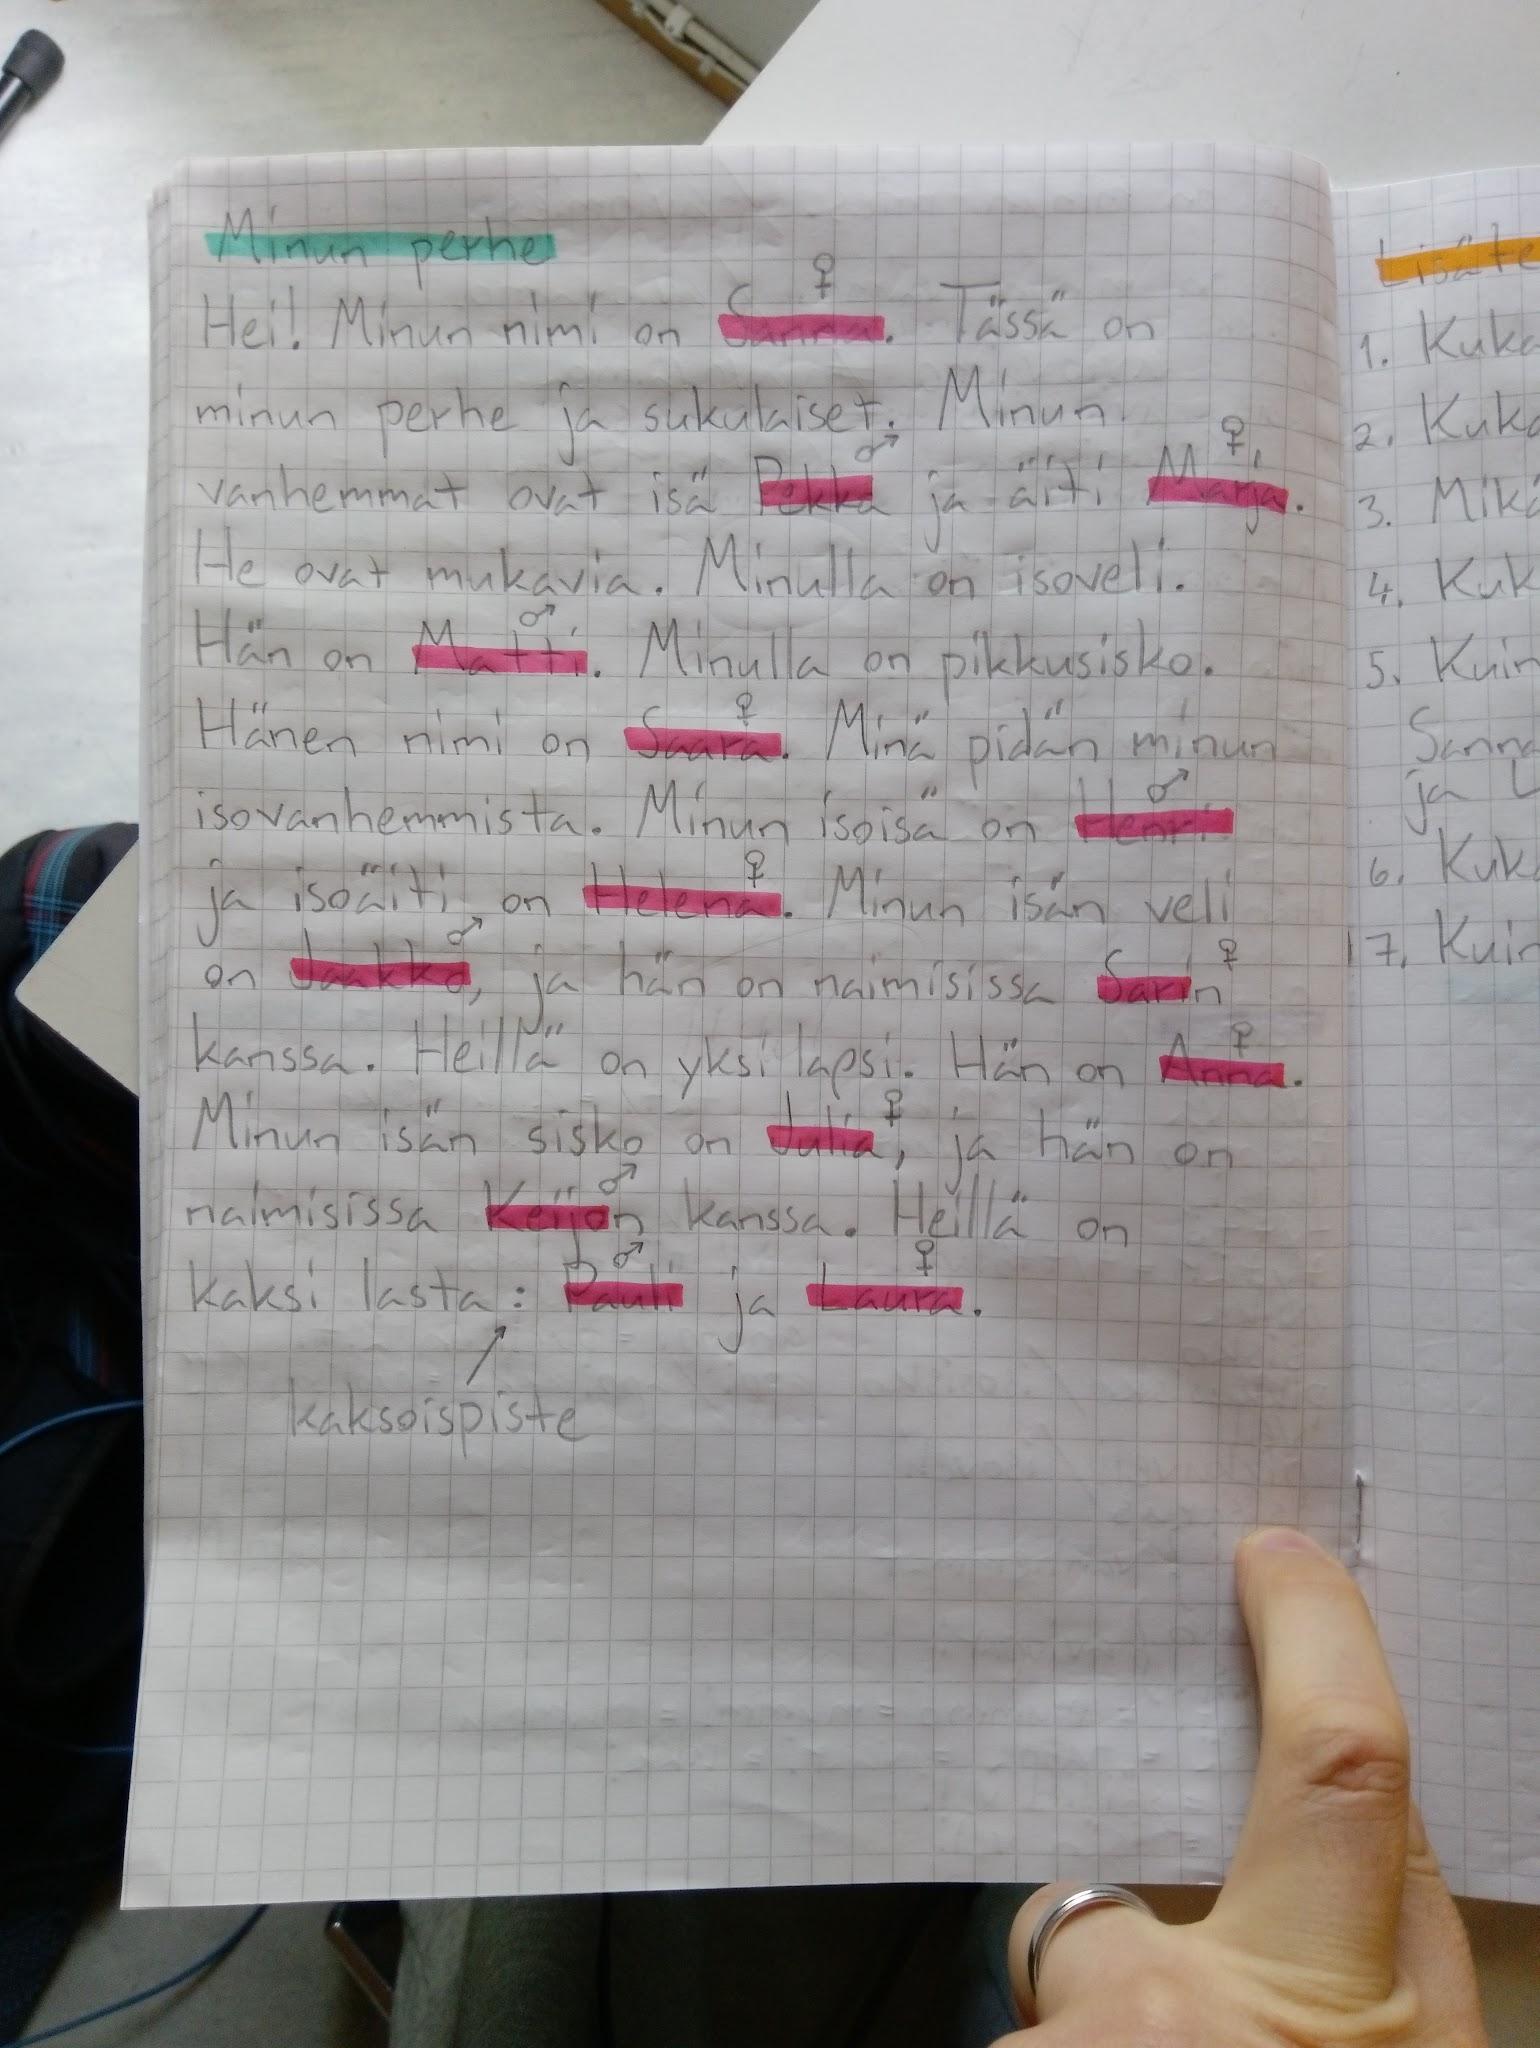 Minun perhe
Hei! Minun nimi on Sanna. Tässä on
minun perhe ja sukulaiset. Minun
vanhemmat ovat isä Pekka ja äiti Marja.
He ovat mukavia. Minulla on isoveli.
Hän on Matti. Minulla on pikkusisko.
Hänen nimi on Saara. Minä pidän minun
isovanhemmista. Minun isoisä on Henri
ja isoäiti on Helena. Minun isän veli
on Jaakko, ja hän on naimisissa Sarin
kanssa. Heillä on yksi lapsi. Hän on Anna.
Minun isän sisko on Julia, ja hän on
naimisissa Keijon kanssa. Heillä on
kaksi lasta: Pauli ja Laura.
kaksoispiste
1. Kuka
2. Kuka
3. Mikä
4.
5.
Sanna
ja L
6. Kuka
7.